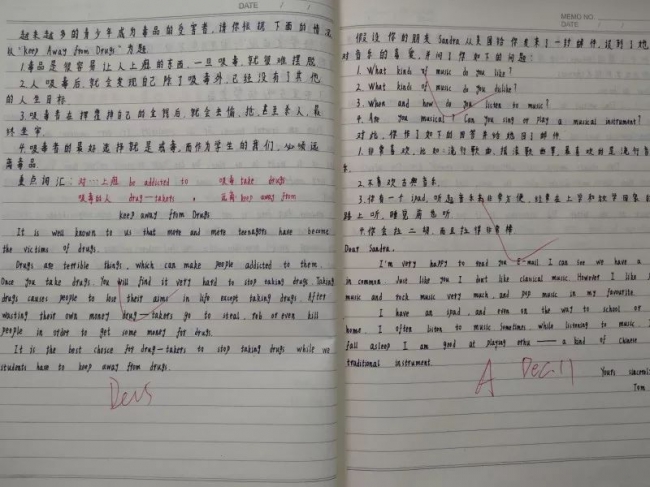 DATE / /
越来越多的青少年成为毒品的受害者,请你根据下面的情况
以"keep Away from Drugs"为题
1.毒品是很容易让人上瘾的东西,一旦吸毒,就很难摆脱
2.人吸毒后,就会发现自己除了吸毒外,已经没有了其他
的人生目标
3.吸毒者在挥霍掉自己的金钱后,就会去偷,抢,甚至杀人,最
终坐牢
4.吸毒者的最好选择就是戒毒,而作为学生的我们,必须远
离毒品
重点词汇:对…上瘾 be addicted to 吸毒 take drugs
吸毒的人 drug-takers , 远离 keep away from
keep away from Drugs
It is well known to us that more and more teenagers have become
the victims of drugs.
Drugs are terrible things, which can make people addicted to them.
Once you take drugs, You will find it very hard to stop taking drugs. Taking
drugs causes people to lose their aims in life except taking drugs. After
wasting their own money drug-takers go to steal, rob or even kill
people in order to get some money for drugs.
It is the best choice for drug-takers to stop taking drugs while we
students have to keep away from drugs.
MEMO NO.
DATE / /
假设你的朋友 Sandra 从美国给你发来了一封邮件,提到了她
对音乐的喜爱,并问了你如下的问题
1. What kinds of music do you like?
2. What kinds of music do you dislike?
3. When and how do you listen to music?
4. Are you musical? Can you sing or play a musical instrument?
对此,你作了如下的回答并给她回了邮件
1.非常喜欢,比如:流行歌曲,摇滚歌曲等,最喜欢的是流行音
乐
2.不喜欢古典音乐
3.你有一个ipad,听起音乐来非常方便,经常在上学和放学回家的
路上听,睡觉前也听
4.你会拉二胡,而且拉得非常棒
Dear Sandra.
I'm very happy to read you E-mail. I can see we have a
in common Just like you I don't like classical music. However I like
music and rock music very much, and pop music is my favourite
I have an ipad, and even on the way to school or
home. I often listen to music Sometimes while listening to music I
fall asleep I am good at playing erhu — a kind of chinese
traditional instrument.
A Dec.11
Yours sincerel
Tom